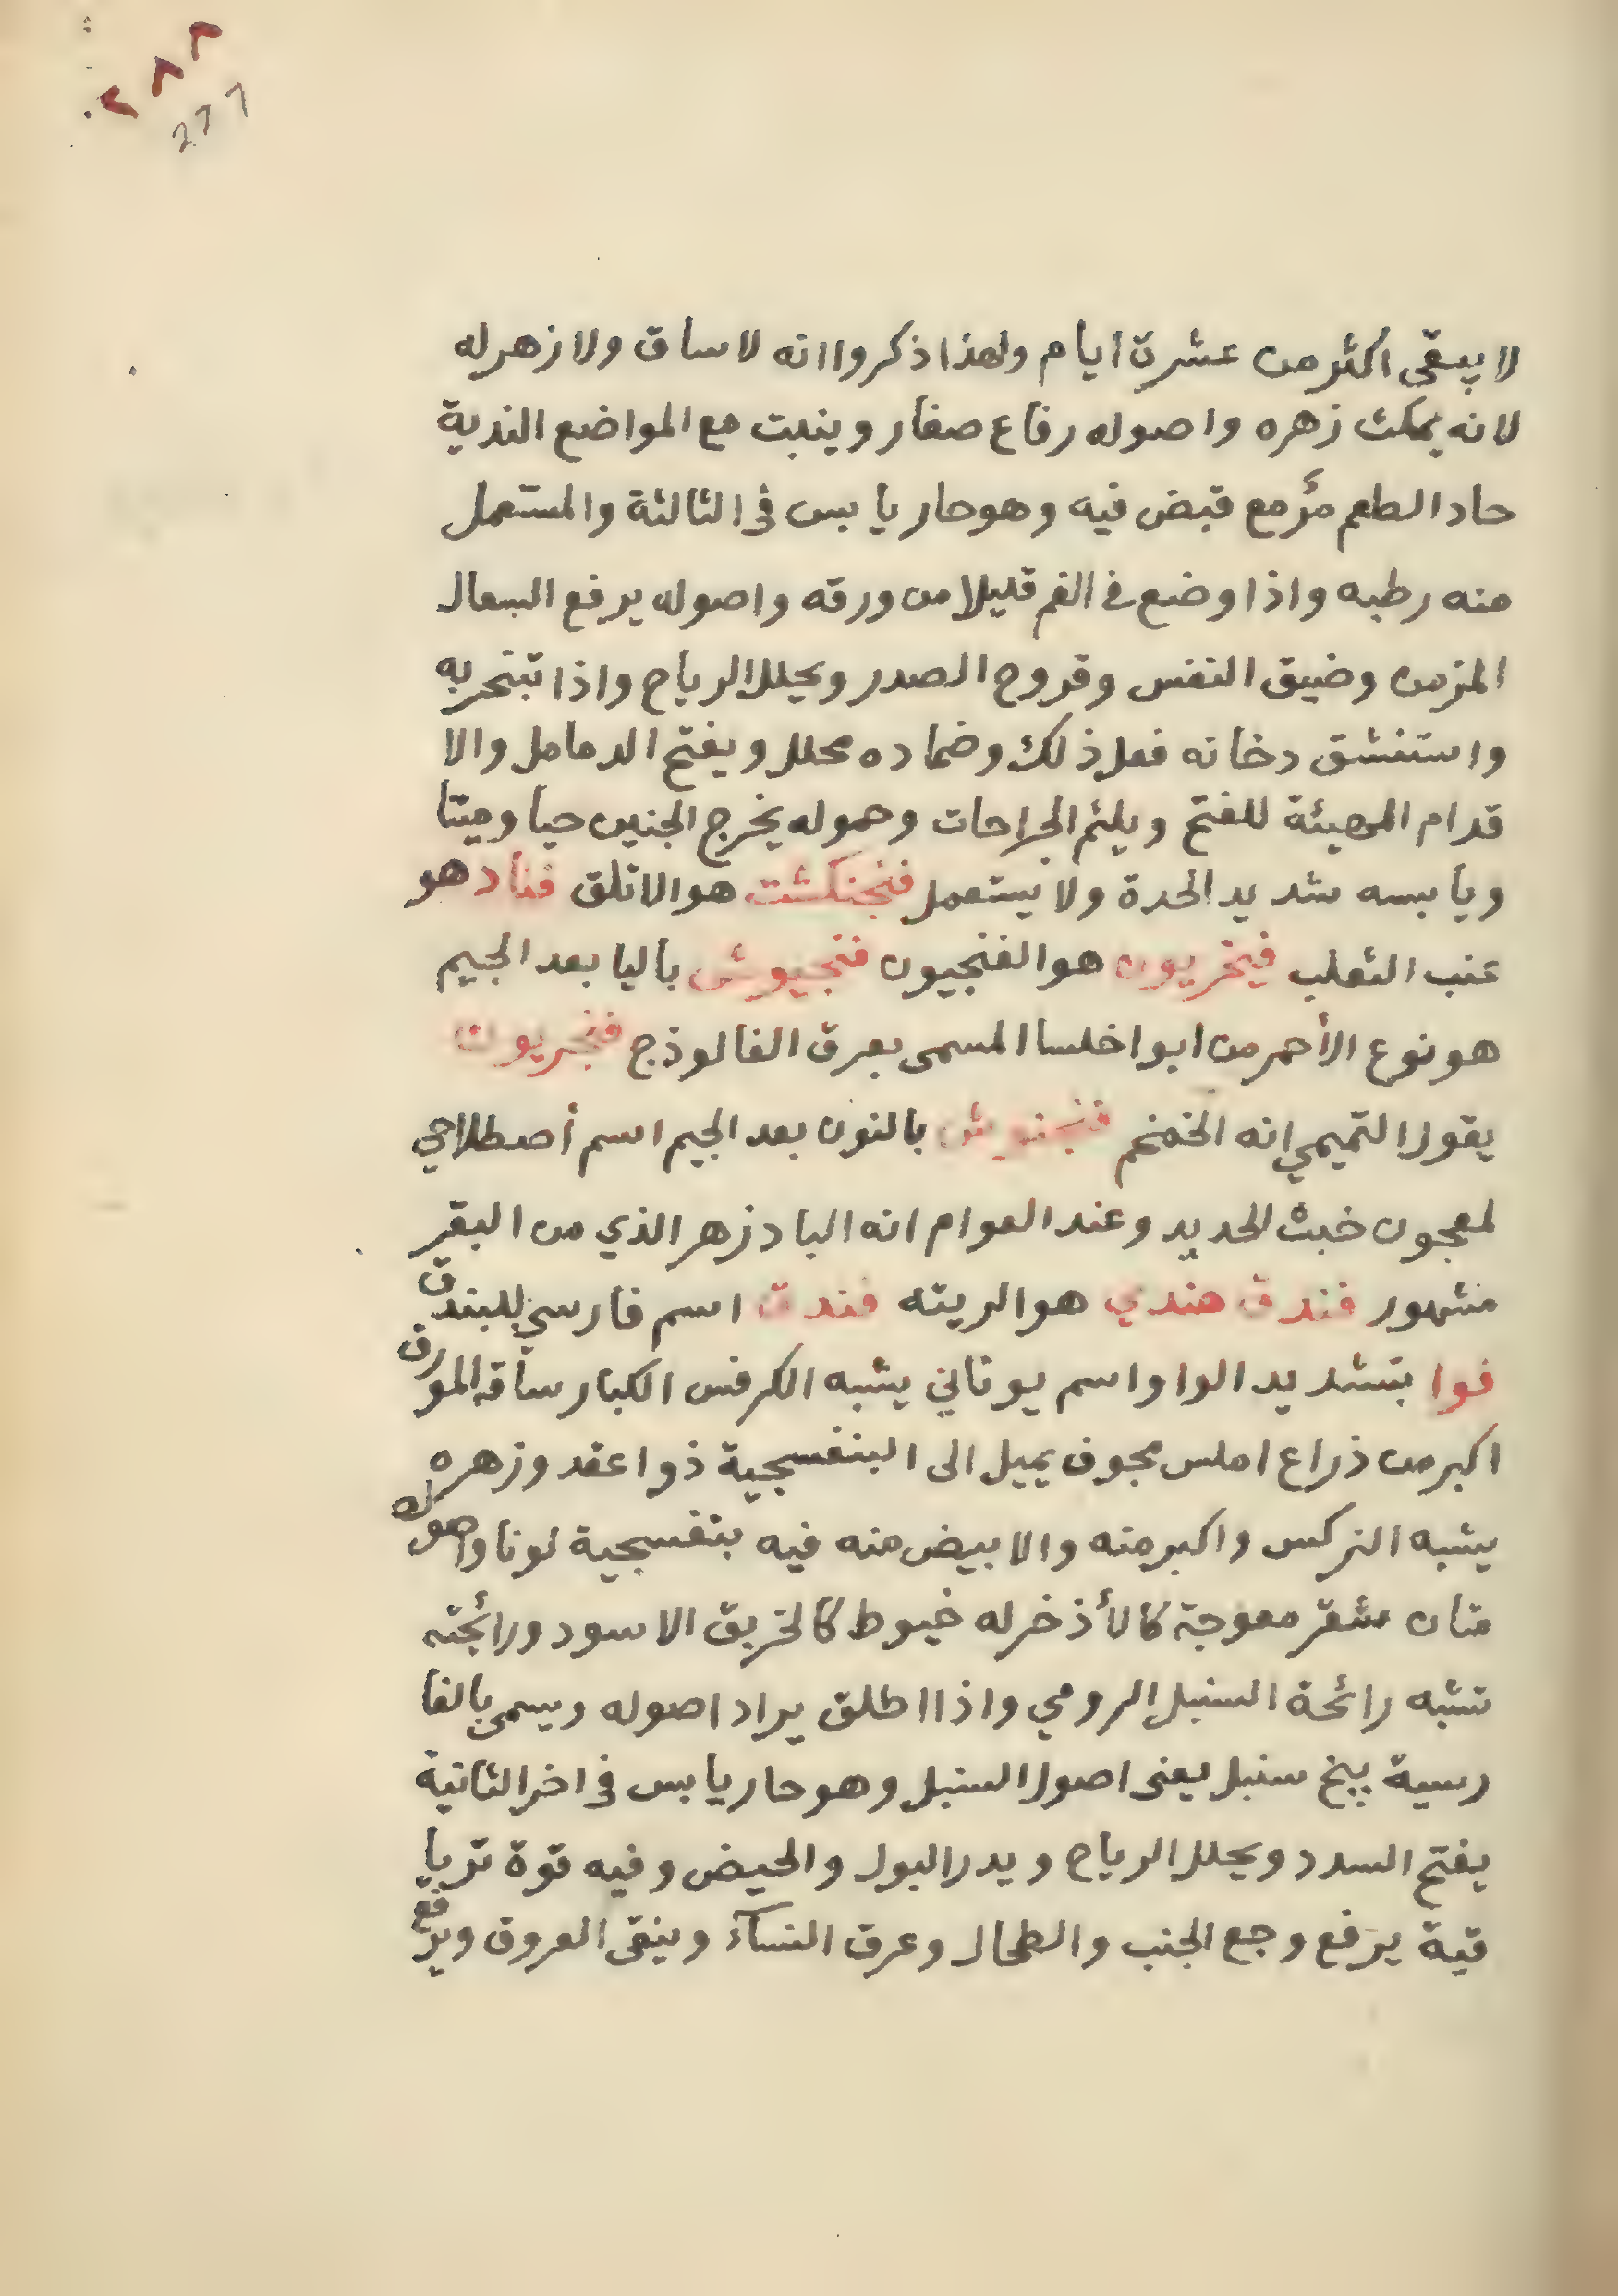 ٢٨٨
277
لا يبقى اكثر من عشرة ايام ولهذا ذكروا انه لا ساق ولا زهر له
لانه يمكث زهره واصوله رقاع صغار وينبت مع المواضع الندية
حاد الطعم مرّ مع قبض فيه وهو حار يابس في الثالثة والمستعمل
منه رطبه واذا وضع في الفم قليلا من ورقه واصوله يرفع السعال
المزمن وضيق النفس وقروح الصدر ويحلل الرياح واذا تبخر به
واستنشق دخانه فعل ذلك وضماده محلل ويفتح الدمامل والا
قدام المهيئة للفتح ويلئم الجراحات وحموله يخرج الجنين حيا وميتا
ويابسه شديد الحدة ولا يستعمل فنجنكشت هو الاثلق فناد هو
عنب الثعلب هو الفنجيون فنجيوش باليا بعد الجيم
هو نوع الأحمر من ابو اخلسا المسمى بعرق الفالوذج فنجريون
يقول التميمي انه الخمخم فنجنوش بالنون بعد الجيم اسم أصطلاحي
لمعجون خبث الحديد وعند العوام انه البادزهر الذي من البقر
مشهور فندق هندي هو الريته فندق اسم فارسي للبندق
فوا بتشديد الواو اسم يوناني يشبه الكرفس الكبار ساقه المورق
اكبر من ذراع املس مجوف يميل الى البنفسجية ذو اعقد وزهره
يشبه النركس واكبر منه والابيض منه فيه بنفسجية لونا واصوله
متان شقر معوجة كالأذخر له خيوط كالخربق الاسود ورائحته
تشبه رائحة السنبل الرومي واذا اطلق يراد اصوله ويسمى بالفا
رسية بيخ سنبل يعنى اصول السنبل وهو حار يابس في اخر الثانية
يفتح السدد ويحلل الرياح ويدر البول والحيض وفيه قوة تريا
قية يرفع وجع الجنب والطحال وعرق النسآء وينقى العروق ويرفع